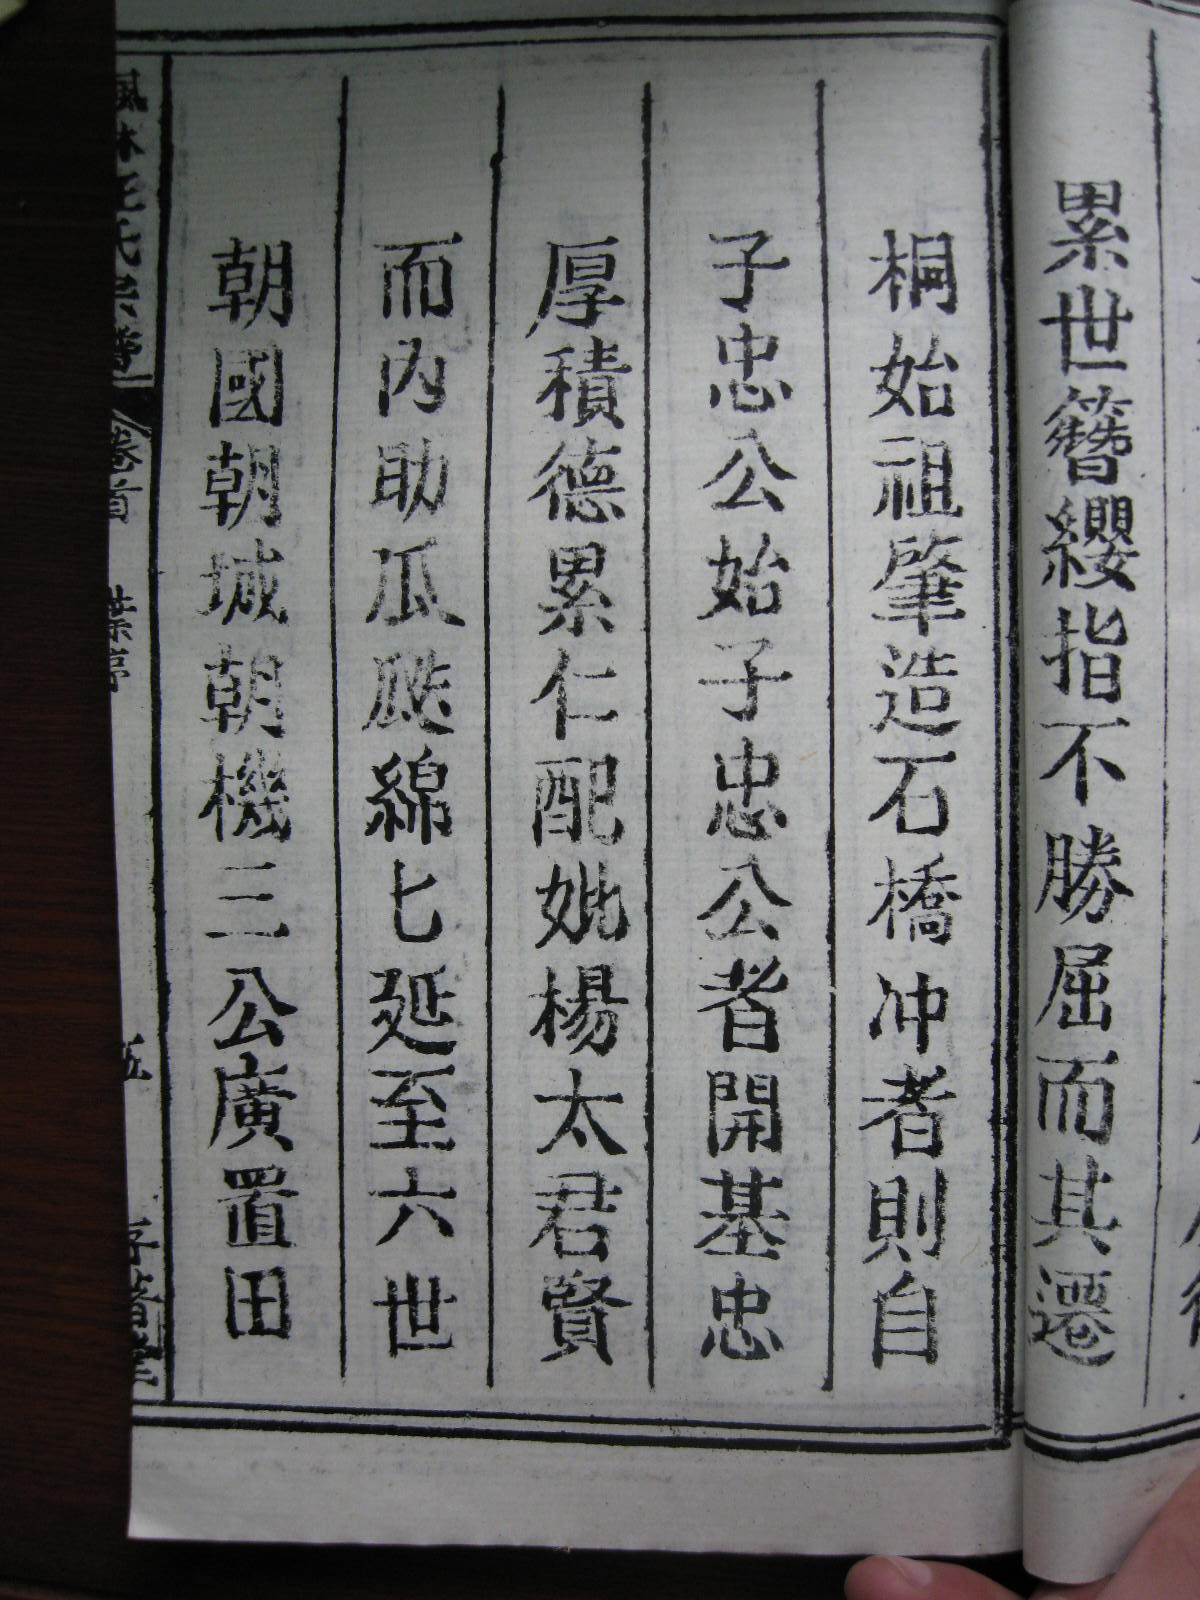 累世簪纓指不勝屈而其遷
桐始祖肇造石橋冲者則自
子忠公始子忠公者開基忠
厚積德累仁配妣楊太君賢
而內助瓜瓞綿匕延至六世
朝國朝城朝機三公廣置田
卷首